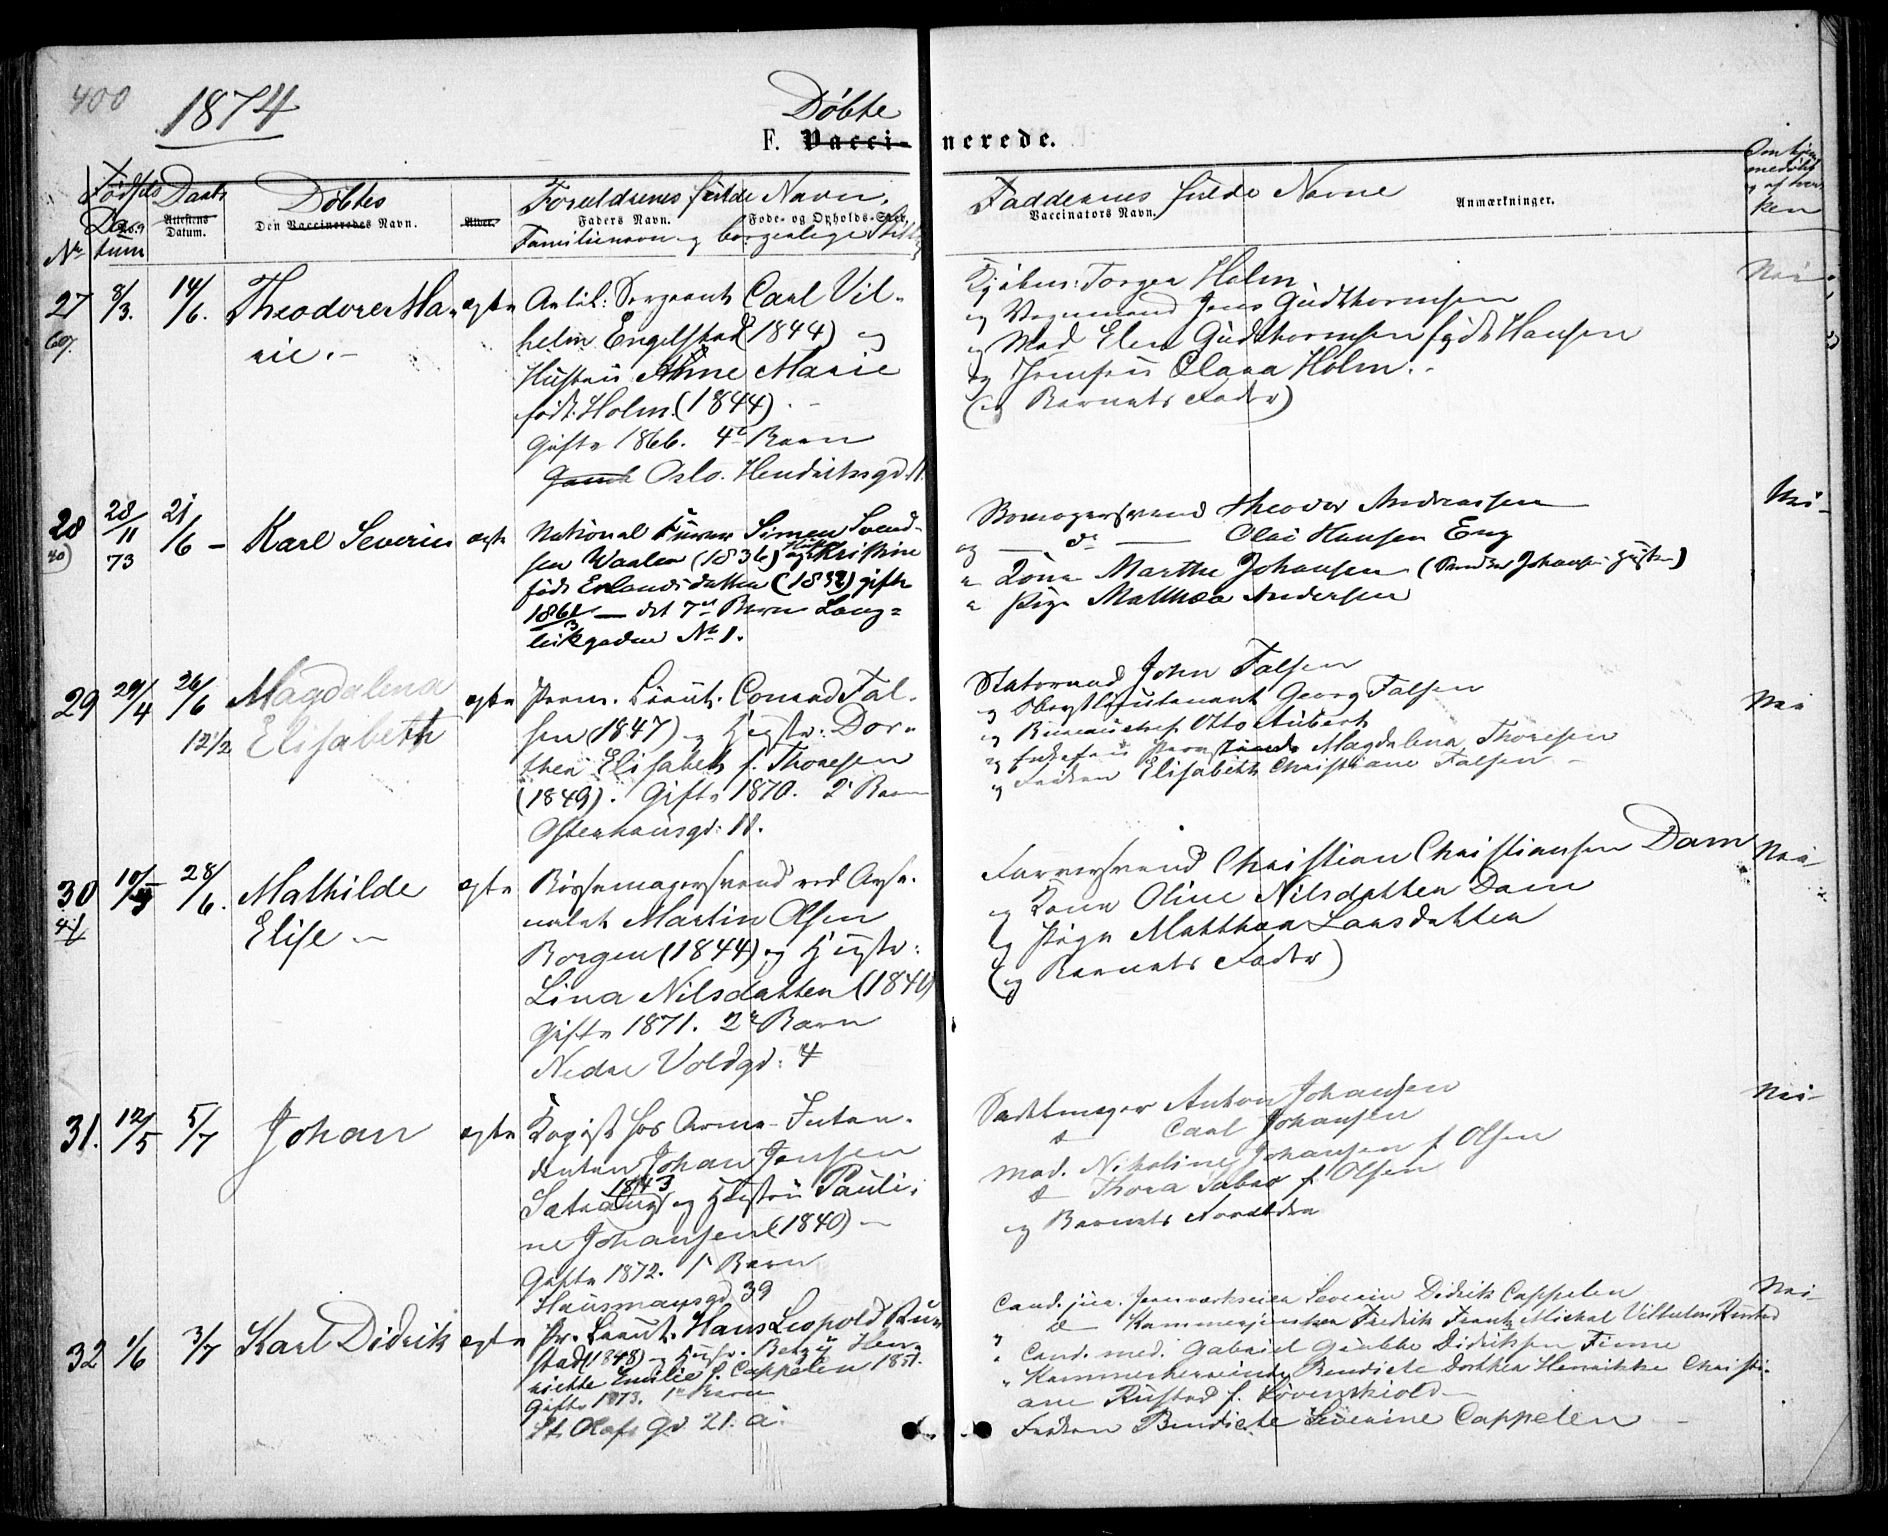 400
1874
Døbte
F. Vaccinerede.
Fødsels Daabs
Datum
Attestens Datum.
Døbtes
Den Vaccineredes Navn.
Alder.
Forældrenes fulde Navn,
Faders Navn.
Føde- og Opholds-Sted.
Familienavn og borgerlige Stilling
Faddernes fulde Navne
Vaccinators Navn.
Anmærkninger.
No
27
8/3.
14/6.
Theodore Ma-
rie.-
ægte
Artil: Sergeant Carl Vil-
helm Engelstad (1844) og
Hustru Anne Marie
født Holm. (1844).-
Gifte 1866. 4e Barn
Oslo. Hendriksgd. 11.
Kjøbm: Torger Holm
og Vognmand Jens Gudthormsen
og Mad Elen Gudthormsen født Hansen
og Jomfru Clara Holm.-
(og Barnets Fader)
Nei
28
40
28/11 73
21/6 -
Karl Severin
ægte
National Furer Simen Svend-
sen Waaler (1836) og Kristine
født Erlandsdatter (1832) gifte
186
- det 7de Barn Lang-
leikgaden No 1.
Theodor Andreassen
og - do - Olai Hansen Eng
" Kone Marthe Johansen
" Pige Mathea Andersen
Nei-
29
29/4
26/6
12 1/2
Magdalena
Elisabeth
ægte
Prem. Lieut. Conrad Fal-
sen (1847) og Hustr: Dor-
thea Elisabeth f. Thoresen
(1849). Gifte 1870. 2e Barn
Osterhausgd: 11.
Statsraad John Falsen
og Oberstlieutenant Georg Falsen
og Bureauchef Otto Aubert
og Enkefru Magdalena Thoresen
og Frøken Elisabeth Christiane Falsen -
Nei
30
41
28/6.
Mathilde
Elise -
ægte
Bøssemagersvend ved Arse-
nalet Martin Olsen
Borgen (1844) og Hustr:
Lina Nilsdatter (1840)
Gifte 1871. 2e Barn
Nedre Voldgd: 4
Farversvend Christian Christiansen Dam
og Kone Oline Nilsdatter Dam
og Pige Matthea Larsdatter
(og Barnets Fader)
Nei
31.
12/5
5/7
Johan
ægte
Kopist hos Arme-Inten-
danten Johan Jensen
1843
og Hustru Pauli-
ne Johansen (1840) -
Gifte 1872. 1e Barn
Hausmansgd 39
Sadelmager Anton Johansen
do Carl Johansen
Mad. Nikoline Johansen f Olsen
do Thora f Olsen
og Barnets Forældre
Nei-
32
1/6
3/7
Karl Didrik
ægte
Pr. Lieut. Hans Leopold Rus-
stad (1848) og Hustr. Betzy Hen-
riette Emilie f. Cappelen 1851.
Gifte 1873. 1e Barn
St. Olafs Gd 21. a.
Cand. jur. Jernværkseier Severin Didrik Cappelen
" Kammerjunker Fredrik Frantz Michal Vilhelm Rustad
" Cand. med. Gabriel Grubbe Didriksen Finne
" Kammerherreinde Bendicte Dorthea Henrikke Christi-
ane Rustad f. Løvenskiold -
Frøken Bendicte Severine Cappelen -
Nei-